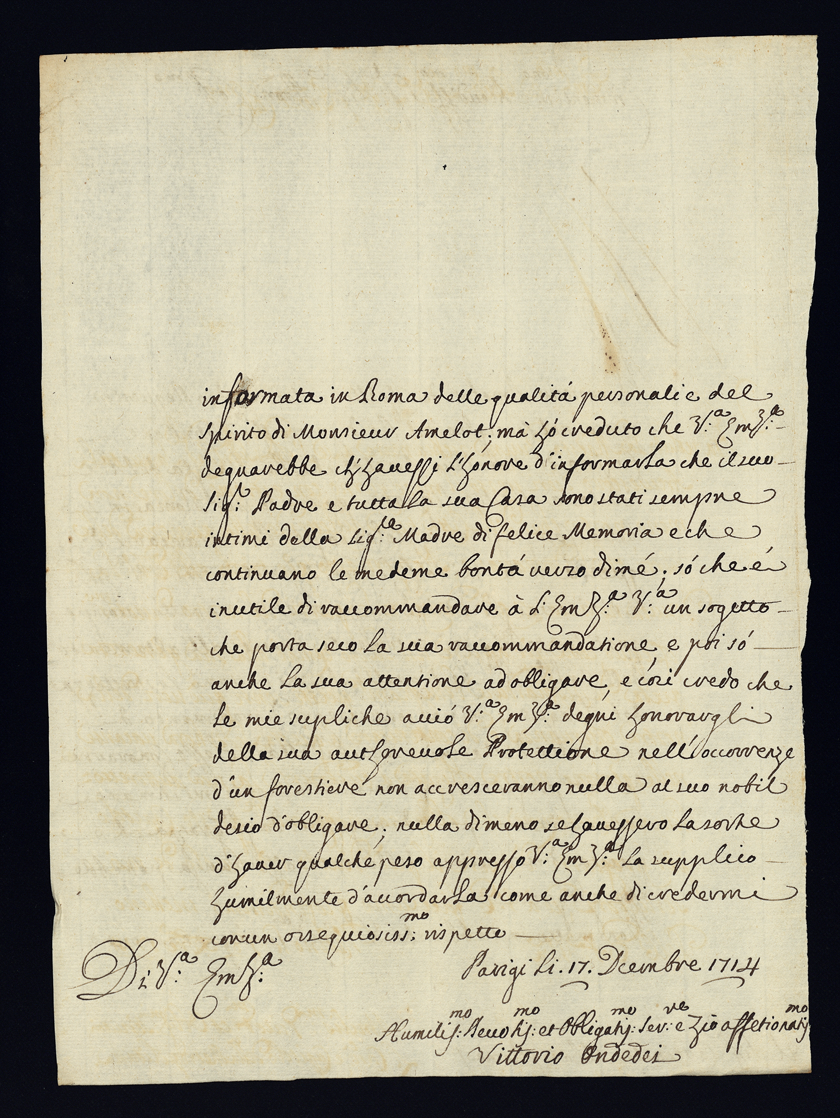 informata in Roma delle qualitá personali e del
spirito di Monsieur Amelot; mà hó creduto che V:ª Emzª:
degnarebbe ch'havessi l'honore d'informarla che il suo
Sigr: Padre e tutta la sua Casa sono stati sempre
intimi della Sigra: Madre di felice Memoria e che
continuano le medeme bontá verso di mé; só che é
inutile di raccommandare à l'Emzª: V:ª un sogetto
che porta seco la sua raccommandatione e poi só
anche la sua attentione ad obligare, e cosi credo che
le mie supliche acció V:ª Emzª: degni honorargli
della sua authorevole Protettione nell'occorrenze
d'un forestiere non accresceranno nulla al suo nobil
desio d'obligare; nulla di meno se havessero la sorte
d'haver qualche peso appresso V:ª Emzª: la supplico
humilmente d'accordarla come anche di credermi
con un ossequiosiss:mo rispetto
Di V:ª Emzª: Parigi li .17. Dcembre 1714
Humilis:mo Devotis:mo et Obligatis:mo Ser:re e Zio affetionatis:mo
Vittorio Ondedei